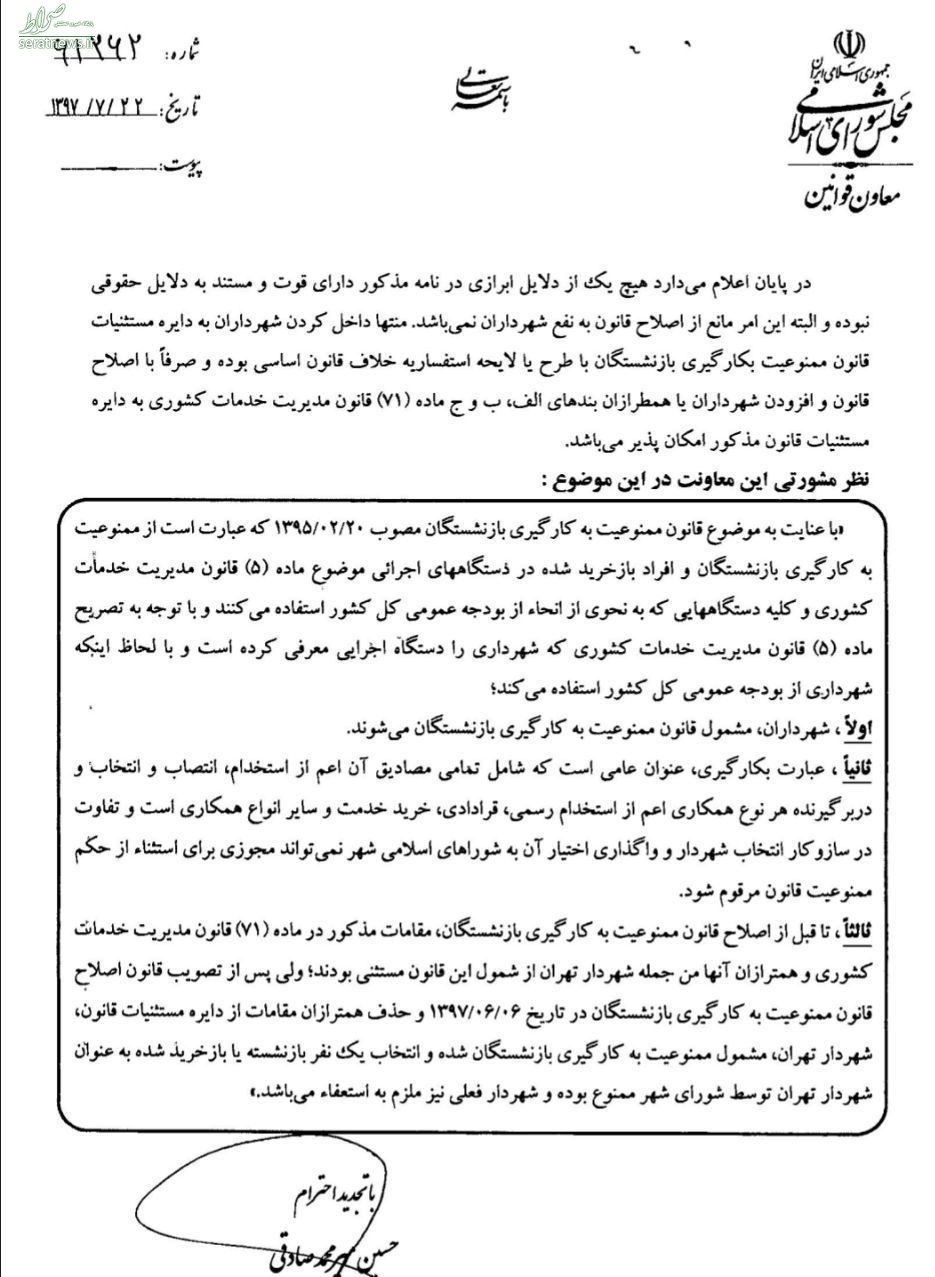 صراط
seratnews.ir
جمهوری اسلامی ایران
مجلس شورای اسلامی
معاون قوانین
باسمه تعالی
شماره:
تاریخ: ۱۳۹۷/۷/۲۲
پیوست:
در پایان اعلام می‌دارد هیچ یک از دلایل ابرازی در نامه مذکور دارای قوت و مستند به دلایل حقوقی
نبوده و البته این امر مانع از اصلاح قانون به نفع شهرداران نمی‌باشد. منتها داخل کردن شهرداران به دایره مستثنیات
قانون ممنوعیت بکارگیری بازنشستگان با طرح یا لایحه استفساریه خلاف قانون اساسی بوده و صرفاً با اصلاح
قانون و افزودن شهرداران یا همطرازان بندهای الف، ب و ج ماده (۷۱) قانون مدیریت خدمات کشوری به دایره
مستثنیات قانون مذکور امکان پذیر می‌باشد.
نظر مشورتی این معاونت در این موضوع :
«با عنایت به موضوع قانون ممنوعیت به کارگیری بازنشستگان مصوب ۱۳۹۵/۰۲/۲۰ که عبارت است از ممنوعیت
به کارگیری بازنشستگان و افراد بازخرید شده در دستگاههای اجرائی موضوع ماده (۵) قانون مدیریت خدمات
کشوری و کلیه دستگاههایی که به نحوی از انحاء از بودجه عمومی کل کشور استفاده می‌کنند و با توجه به تصریح
ماده (۵) قانون مدیریت خدمات کشوری که شهرداری را دستگاه اجرایی معرفی کرده است و با لحاظ اینکه
شهرداری از بودجه عمومی کل کشور استفاده می‌کند؛
اولاً ، شهرداران، مشمول قانون ممنوعیت به کارگیری بازنشستگان می‌شوند.
ثانیاً ، عبارت بکارگیری، عنوان عامی است که شامل تمامی مصادیق آن اعم از استخدام، انتصاب و انتخاب و
دربرگیرنده هر نوع همکاری اعم از استخدام رسمی، قرادادی، خرید خدمت و سایر انواع همکاری است و تفاوت
در سازوکار انتخاب شهردار و واگذاری اختیار آن به شوراهای اسلامی شهر نمی‌تواند مجوزی برای استثناء از حکم
ممنوعیت قانون مرقوم شود.
ثالثاً ، تا قبل از اصلاح قانون ممنوعیت به کارگیری بازنشستگان، مقامات مذکور در ماده (۷۱) قانون مدیریت خدمات
کشوری و همترازان آنها من جمله شهردار تهران از شمول این قانون مستثنی بودند؛ ولی پس از تصویب قانون اصلاح
قانون ممنوعیت به کارگیری بازنشستگان در تاریخ ۱۳۹۷/۰۶/۰۶ و حذف همترازان مقامات از دایره مستثنیات قانون،
شهردار تهران، مشمول ممنوعیت به کارگیری بازنشستگان شده و انتخاب یک نفر بازنشسته یا بازخرید شده به عنوان
شهردار تهران توسط شورای شهر ممنوع بوده و شهردار فعلی نیز ملزم به استعفاء می‌باشد.»
با تجدید احترام
حسین میرمحمد صادقی